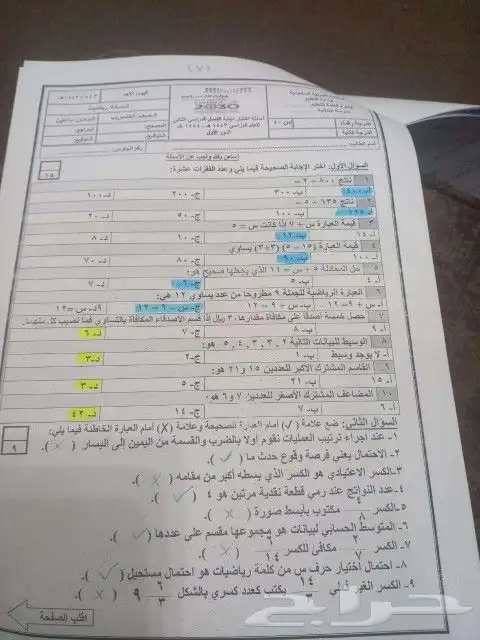 (٧)
المملكة العربية السعودية
وزارة التعليم
2030
أسئلة اختبار نهاية الفصل الدراسي الثاني
للعام الدراسي ١٤٤٣ - ١٤٤٤ هـ
الدور الأول
اليوم: الأحد
المادة: رياضيات
الزمن: ساعتين
المصحح:
المراجع:
التوقيع:
الدرجة رقماً:
من ٤٠
الدرجة كتابة
اسم الطالب:
رقم الجلوس:
استعن بالله وأجب عن الأسئلة
السؤال الأول: اختر الإجابة الصحيحة فيما يلي وعدد الفقرات عشرة:
١٥
١ ناتج ٨٠٠ ÷ ٢ =
أ- ٤٠٠ ب- ٣٠٠ ج- ٢٠٠ د- ١٠٠
٢ ناتج ٦٣٥ ÷ ٥ =
أ- ١٢٧ ب- ١٠٠ ج- ٥٠ د- ٢٠
٣ قيمة العبارة س + ٧ إذا كانت س = ٥
أ- ١٤ ب- ١٢ ج- ١٠ د- ٨
٤ قيمة العبارة (١٥ - ٥) (٣+٣) يساوي
أ- ١٠٠ ب- ٩٠ ج- ٨٠ د- ٧٠
٥ حل المعادلة ٥ + س = ١١ الذي يجعلها صحيح هو:
أ- ٤ ب- ٥ ج- ٦ د- ٧
٦ العبارة الرياضية للجملة ٩ مطروحا من عدد يساوي ١٢ هي:
أ- س + ٩ = ١٢ ب- س ÷ ٩ = ١٢ ج- س - ٦ = ١٢ ٩د- س = ١٢
٧ حصل خمسة أصدقاء على مكافأة مقدارها ٣٠ ريال إذا قسم الأصدقاء المكافأة بالتساوي فما نصيب كل منهما
أ- ٩ ب- ٨ ج- ٧ د- ٦
٨ الوسيط للبيانات التالية ٢ ، ٣ ، ٣ ، ٤ ، ٥ هو:
أ- لا يوجد وسيط ب- ١ ج- ٢ د- ٣
٩ القاسم المشترك الأكبر للعددين ١٥ و ٢١ هو:
أ- ١٥ ب- ٢١ ج- ٥ د- ٣
١٠ المضاعف المشترك الأصغر للعددين ٧ و ٦ هو:
أ- ٦ ب- ٧ ج- ١٤ د- ٤٢
السؤال الثاني: ضع علامة (√) أمام العبارة الصحيحة وعلامة (X) أمام العبارة الخاطئة فيما يلي:
٩
١- عند إجراء ترتيب العمليات نقوم أولا بالضرب والقسمة من اليمين إلى اليسار ( X ).
٢- الاحتمال يعني فرصة وقوع حدث ما ( √ ).
٣- الكسر الاعتيادي هو الكسر الذي بسطه أكبر من مقامه ( X ).
٤- عدد النواتج عند رمي قطعة نقدية مرتين هو ٤ ( √ ).
٥- الكسر ٤/٨ مكتوب بأبسط صورة ( X ).
٦- المتوسط الحسابي لبيانات هو مجموعها مقسم على عددها ( √ ).
٧- الكسر ٢/٧ مكافئ للكسر ٦/١٤ ( X ).
٨- احتمال اختيار حرف س من كلمة رياضيات هو احتمال مستحيل ( √ ).
٩- الكسر الغير فعلي ١٤/٣ يكتب كعدد كسري بالشكل ٩ ٦/٣ ( X ).
اقلب الصفحة
حراج